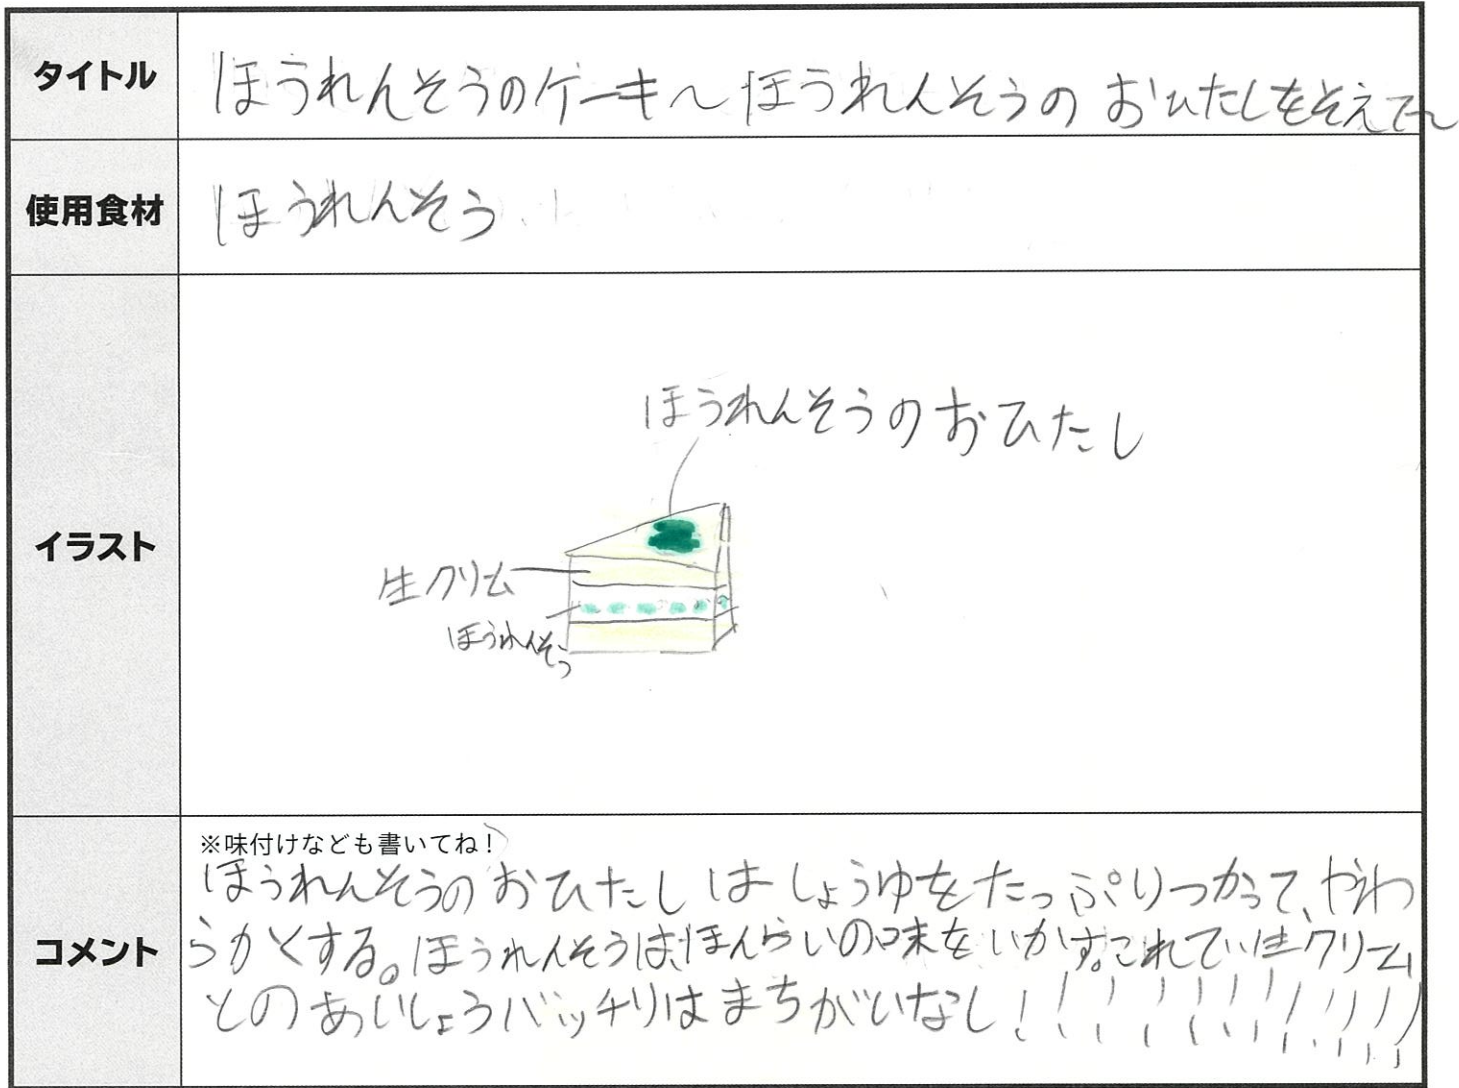 タイトル
ほうれんそうのケーキ〜ほうれんそうのおひたしをそえて〜
使用食材
ほうれんそう
イラスト
ほうれんそうのおひたし
生クリム
ほうれんそう
コメント
※味付けなども書いてね!
ほうれんそうのおひたしはしょうゆをたっぷりつかって、やわ
らかくする。ほうれんそうは、ほんらいの味をいかす。これで、生クリーム
とのあいしょうバッチリはまちがいなし!!!!!!!!!!!!